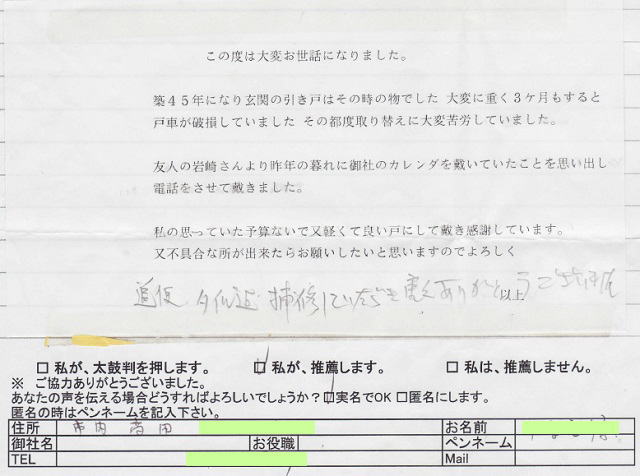 この度は大変お世話になりました。
築４５年になり玄関の引き戸はその時の物でした 大変に重く３ケ月もすると
戸車が破損していました その都度取り替えに大変苦労していました。
友人の岩崎さんより昨年の暮れに御社のカレンダを戴いていたことを思い出し
電話をさせて戴きました。
私の思っていた予算ないで又軽くて良い戸にして戴き感謝しています。
又不具合な所が出来たらお願いしたいと思いますのでよろしく
追伸 タイル迄 補修していただき ありがとう
以上
□ 私が、太鼓判を押します。 □ 私が、推薦します。 □ 私は、推薦しません。
※ ご協力ありがとうございました。
あなたの声を伝える場合どうすればよろしいでしょうか？□実名でOK □匿名にします。
匿名の時はペンネームを記入下さい。
住所 市内 お名前
御社名 お役職 ペンネーム
TEL Mail